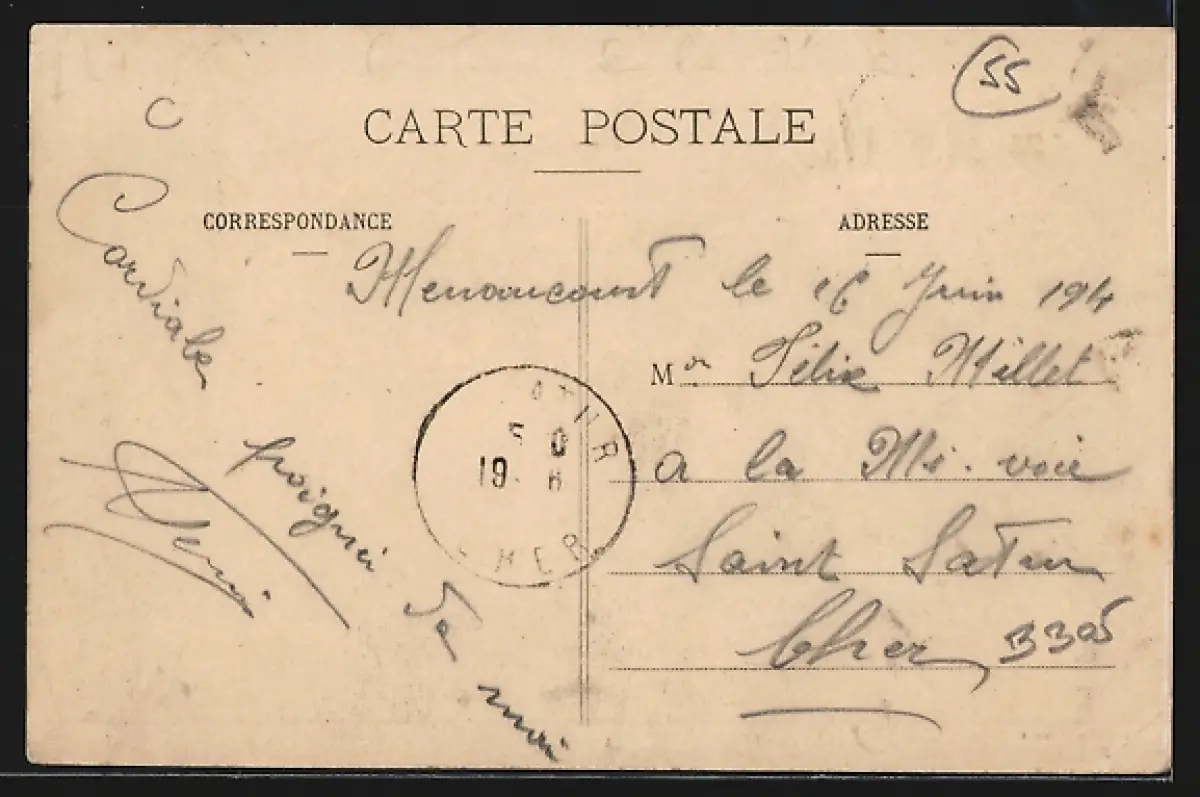 55
C
CARTE POSTALE
CORRESPONDANCE
ADRESSE
Menaucourt le 16 Juin 191
Mr Félix Millet
a la Mi-voie
Saint Satur
Cher
Cordiale
poignée de
moi
Henri
19
CHER